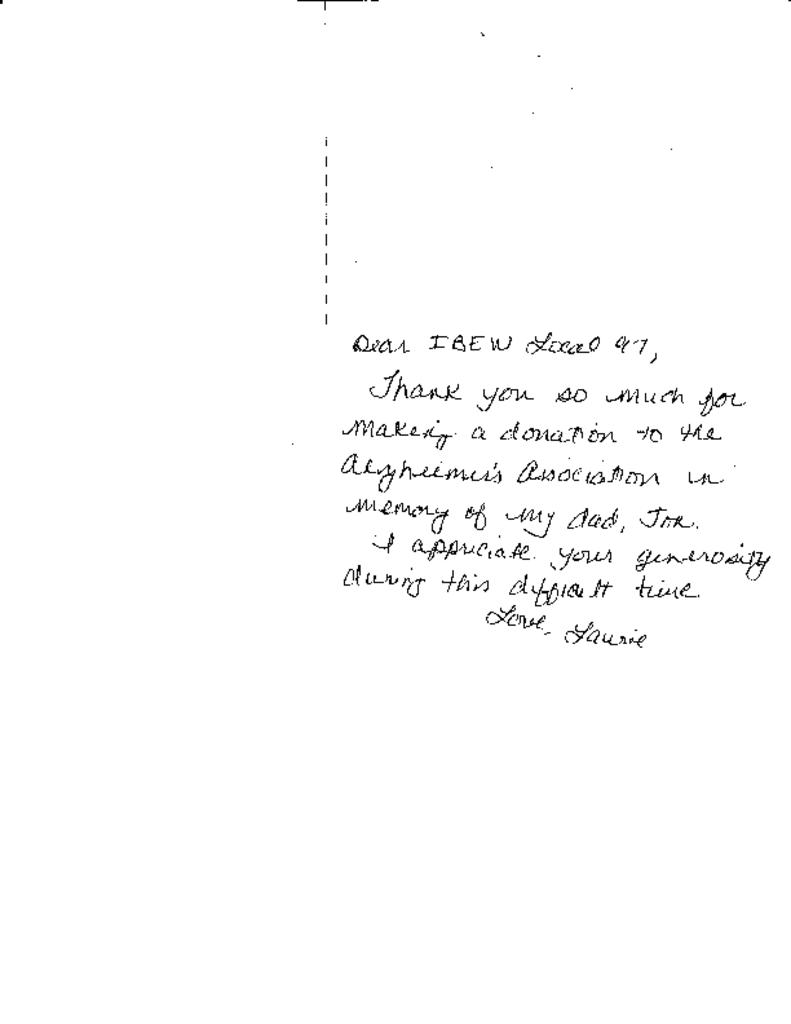 Dear IBEW Local 97,
Thank you so much for
making a donation to the
Alzheimer's Association in
memory of my dad, Joe.
I appreciate your generosity
during this difficult time
Love, Laurie